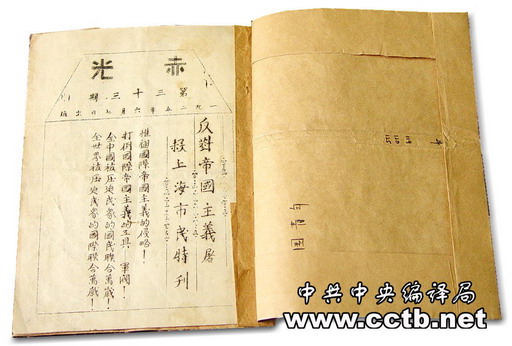 赤光
第三十三期
一九二五年六月七日出版
反對帝國主義屠
殺上海市民特刊
推翻國際帝國主義的侵略！
打倒國際帝國主義的工具 軍閥！
全中國被压迫民眾的國民聯合萬歲！
全世界被压迫民眾的國際聯合萬歲！
中共中央编译局
www.cctb.net